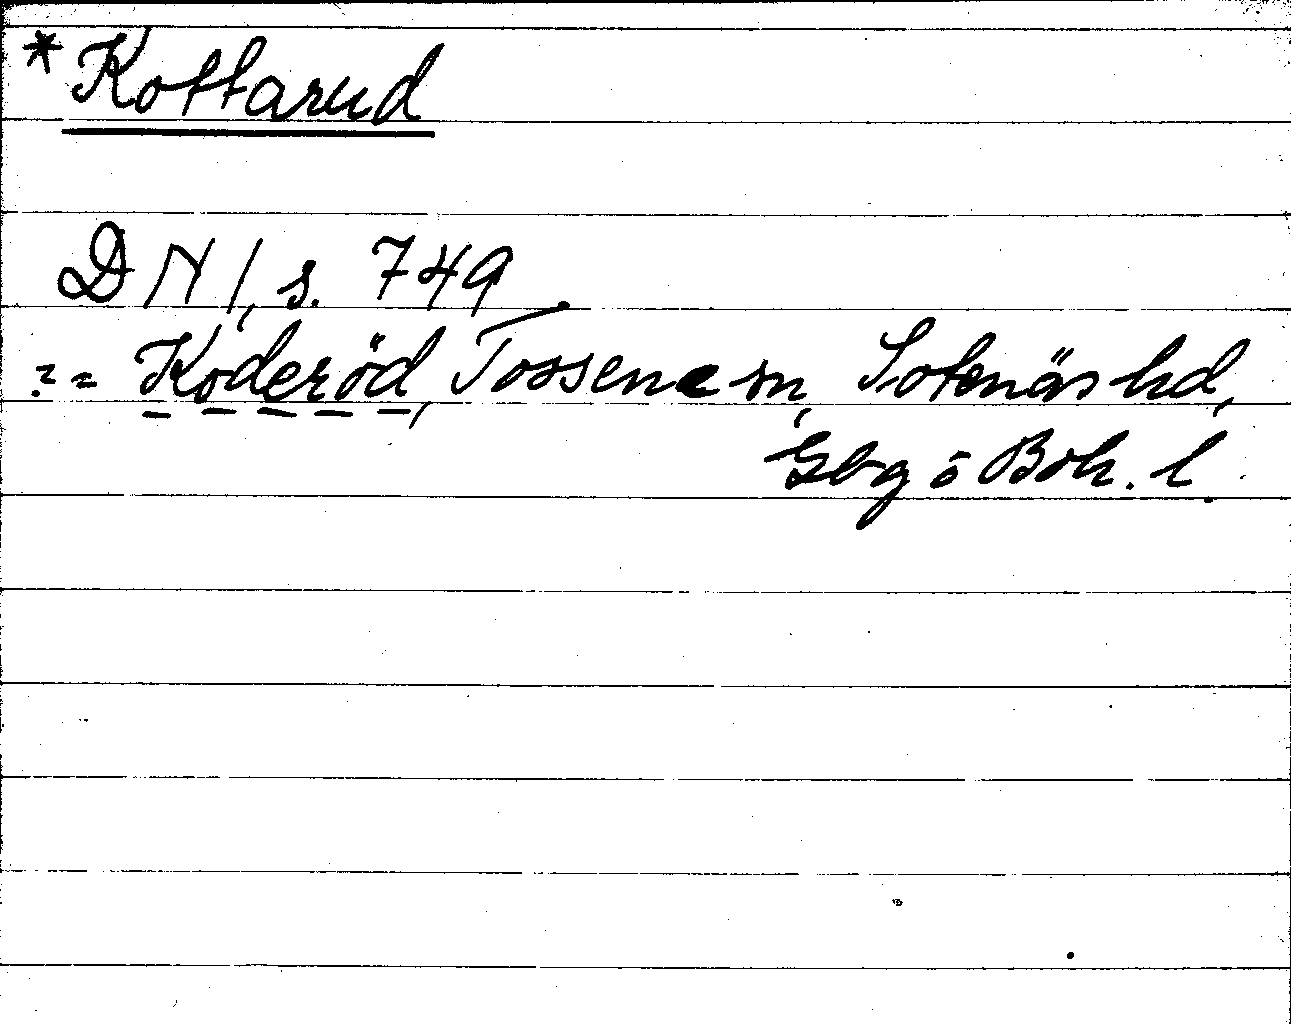 *Kottarud
DN 1, s. 749.
?= Koderöd, Tossene sn, Sotenäs hd,
Gbg o Boh. l.